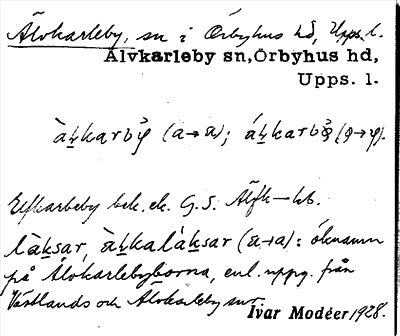 Älvkarleby, sn i Örbyhus hd, Upps. l.
Älvkarleby sn, Örbyhus hd,
Upps. l.
(a→a);
Elfkarleby bek. ek. G. S. Älfk—kb.
làksar, àkkalàksar (a→a): öknamn
på Älvkarlebyborna, enl. uppg. från
Västlands och Älvkarleby snr.
Ivar Modéer 1928.